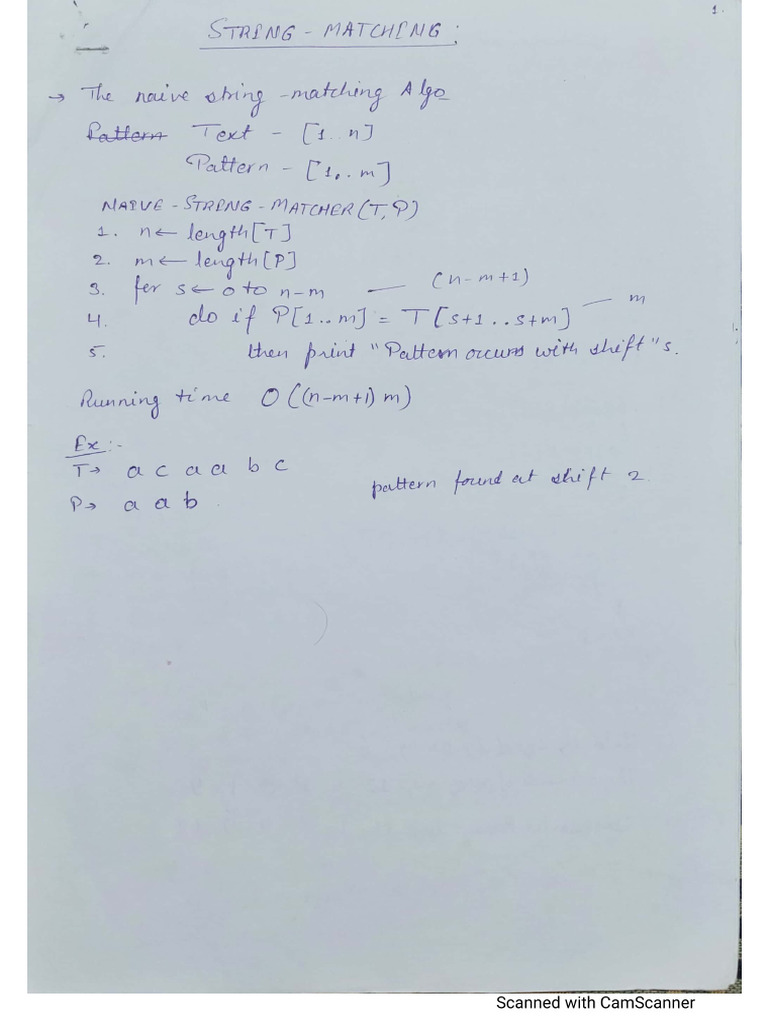 1.
STRING - MATCHING :
→ The naive string - matching Algo
Pattern Text - [1..n]
Pattern - [1..m]
NAIVE - STRING - MATCHER (T, P)
1. n ← length [T]
2. m ← length [P]
3. for s ← 0 to n-m — (n-m+1)
4. do if P[1..m] = T[s+1..s+m] — m
5. then print "Pattern occurs with shift" s.
Running time O((n-m+1) m)
Ex :-
T → a c a a b c
P → a a b
pattern found at shift 2.
Scanned with CamScanner